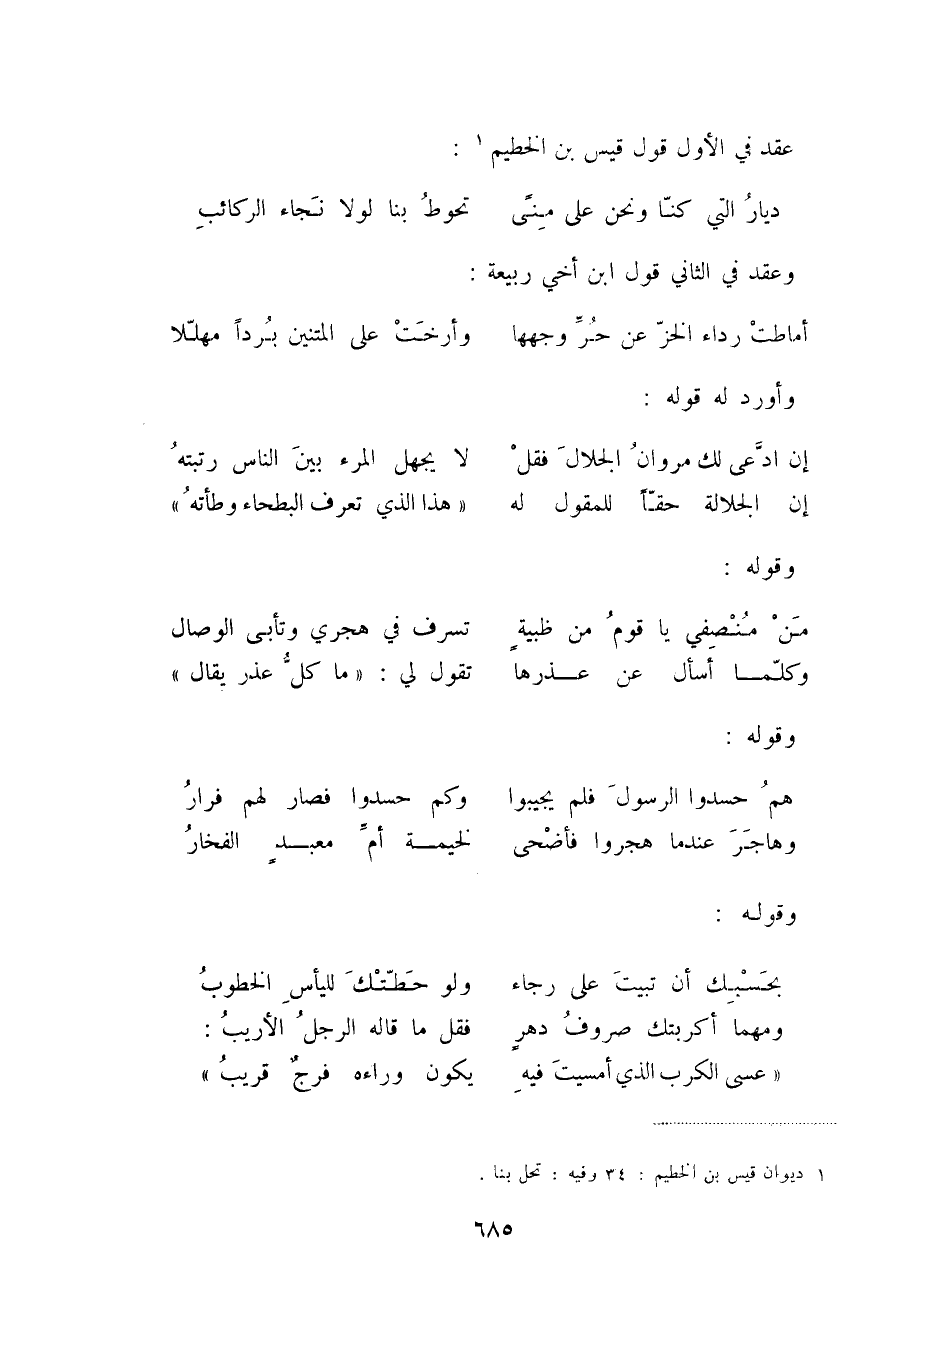 عقد في الأول قول قيس بن الخطيم ١ :
ديارُ التي كنّا ونحن على مِنًى تحوطُ بنا لولا نَجاء الركائبِ
وعقد في الثاني قول ابن أخي ربيعة :
أماطتْ رداء الخزّ عن حُرِّ وجهها وأرخَتْ على المتنين بُرداً مهلّلا
وأورد له قوله :
إن ادَّعى لك مروانُ الجلالَ فقلْ لا يجهل المرء بينَ الناس رتبتهُ
إن الجلالة حقّاً للمقول له « هذا الذي تعرف البطحاء وطأتهُ »
وقوله :
مَنْ مُنْصِفي يا قومُ من ظبيةٍ تسرف في هجري وتأبى الوصال
وكلّمـا أسأل عن عـذرها تقول لي : « ما كلُّ عذر يقال »
وقوله :
همُ حسدوا الرسولَ فلم يجيبوا وكم حسدوا فصار لهم فرارُ
وهاجَرَ عندما هجروا فأضْحى لخيمـة أمِّ معبـدٍ الفخارُ
وقوله :
بحَسْبِك أن تبيتَ على رجاء ولو حَطّتْكَ لليأسِ الخطوبُ
ومهما أكربتك صروفُ دهرٍ فقل ما قاله الرجلُ الأريبُ :
« عسى الكرب الذي أمسيتَ فيهِ يكون وراءه فرجٌ قريبُ »
١ ديوان قيس بن الخطيم : ٣٤ وفيه : تحل بنا .
٦٨٥